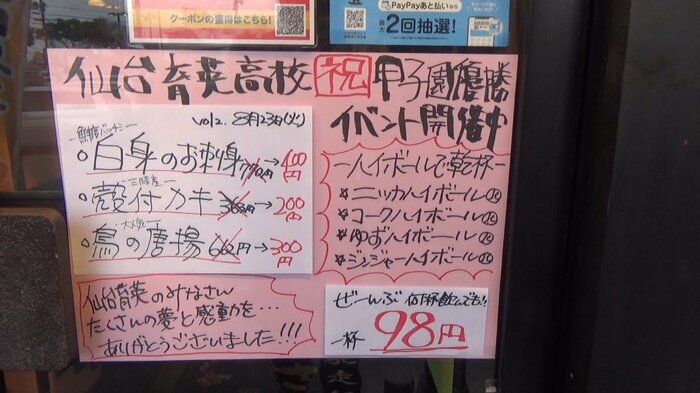 クーポンの獲得はこちら!
PayPayあと払いなら
最大2回抽選!
仙台育英高校 祝 甲子園優勝
イベント開催中
vol2. 8月23日(火)
鮮度バッチシー
○白身のお刺身 770円→400円
三陸産
○殻付カキ 363円→200円
○鳥の唐揚 662円→300円
ーハイボールで乾杯ー
☆ニッカハイボール
☆コークハイボール
☆ゆずハイボール
☆ジンジャーハイボール
仙台育英のみなさん
たくさんの夢と感動を…
ありがとうございました!!!
ぜーんぶ 何杯飲んでも!!
一杯 98円